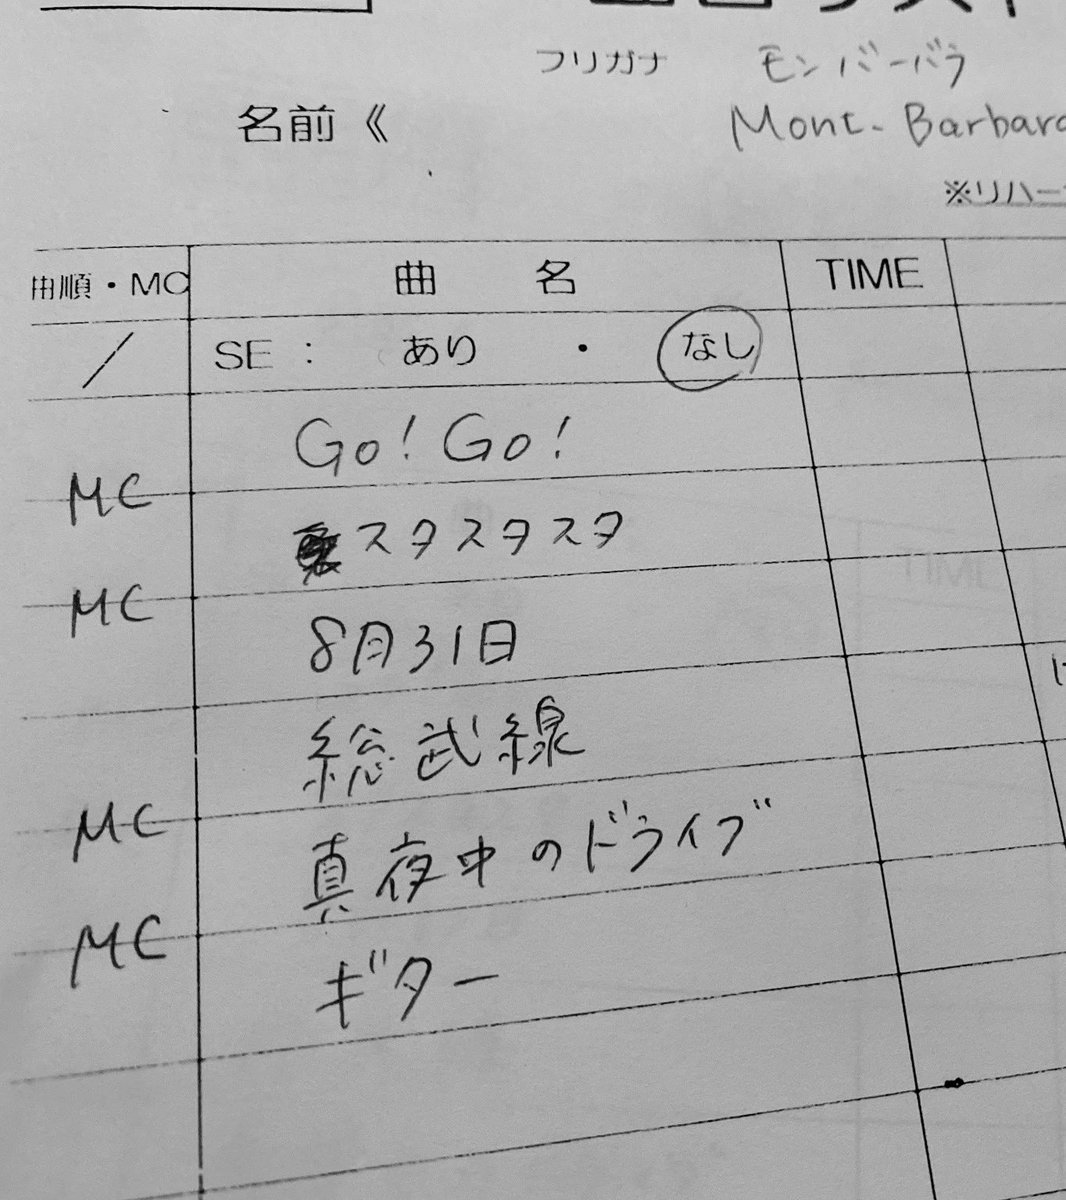 フリガナ モンバーバラ
名前《 Mont-Barbara
※リハー
曲順・MC 曲 名 TIME
/ SE: あり ・ なし
Go! Go!
MC
スタスタスタ
MC
8月31日
総武線
MC
真夜中のドライブ
MC
ギター